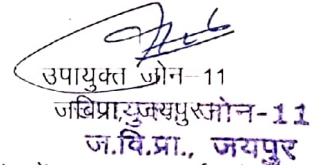 उपायुक्त जोन-11
जविप्रा,
जोन-11
ज.वि.प्रा., जयपुर